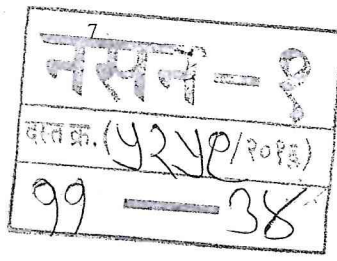 नसन - १
दस्त क्र. (५२५९/२०१६)
११ — ३४